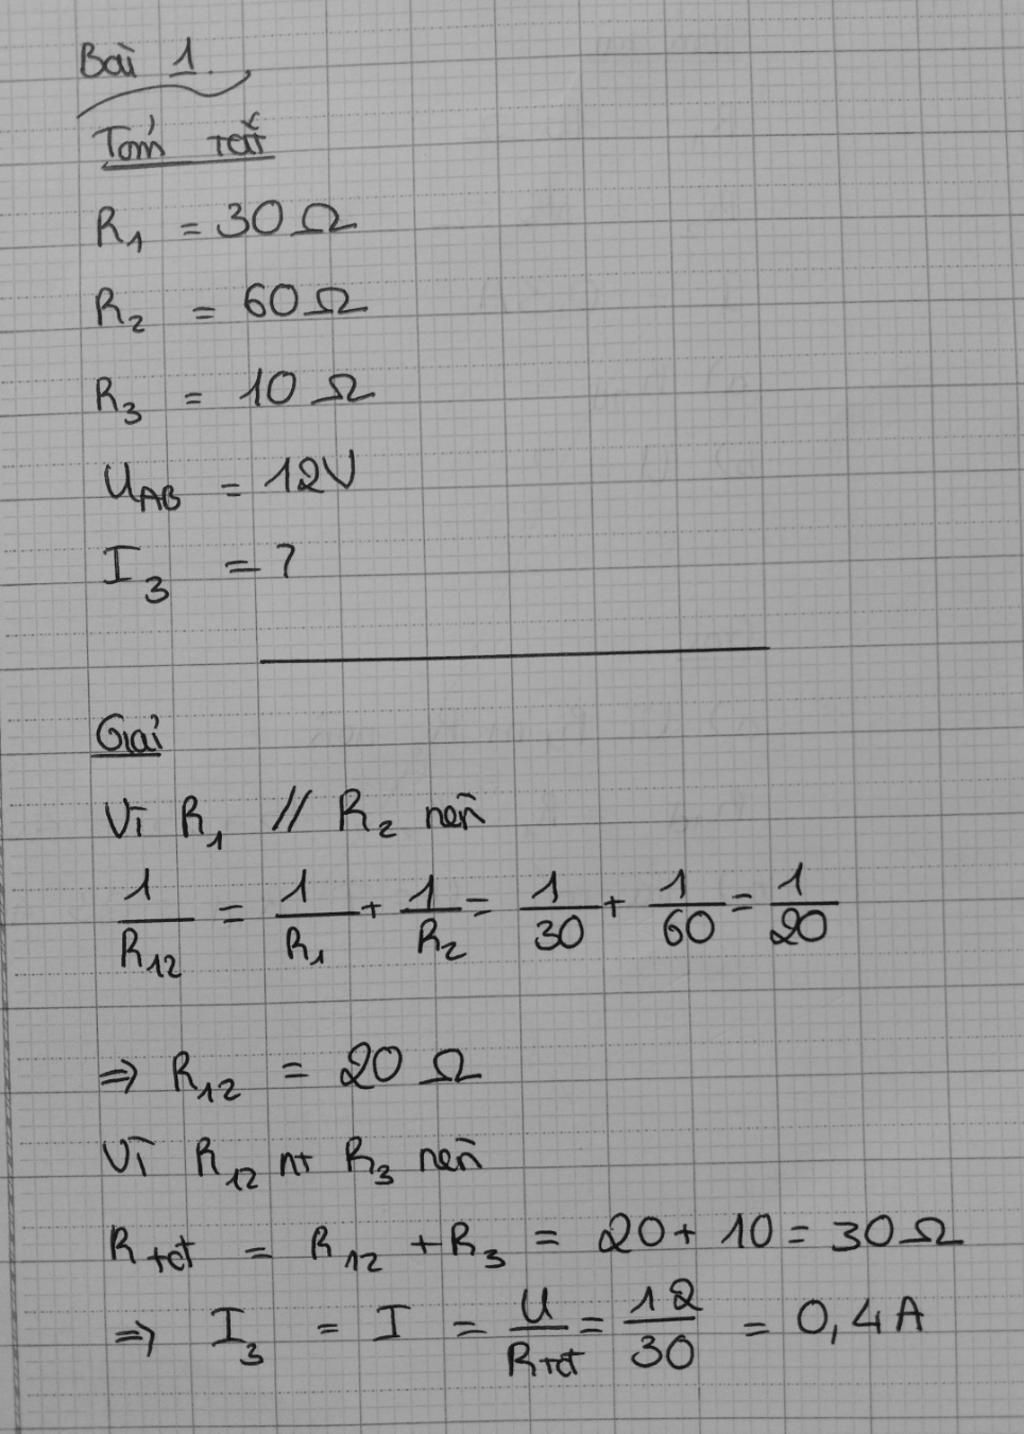 Bài 1.
Tóm tắt
R₁ = 30 Ω
R₂ = 60 Ω
R₃ = 10 Ω
U_AB = 12V
I₃ = ?
Giải
Vì R₁ // R₂ nên
1/R₁₂ = 1/R₁ + 1/R₂ = 1/30 + 1/60 = 1/20
⇒ R₁₂ = 20 Ω
Vì R₁₂ nt R₃ nên
R_tđ = R₁₂ + R₃ = 20 + 10 = 30 Ω
⇒ I₃ = I = U/R_tđ = 12/30 = 0,4 A